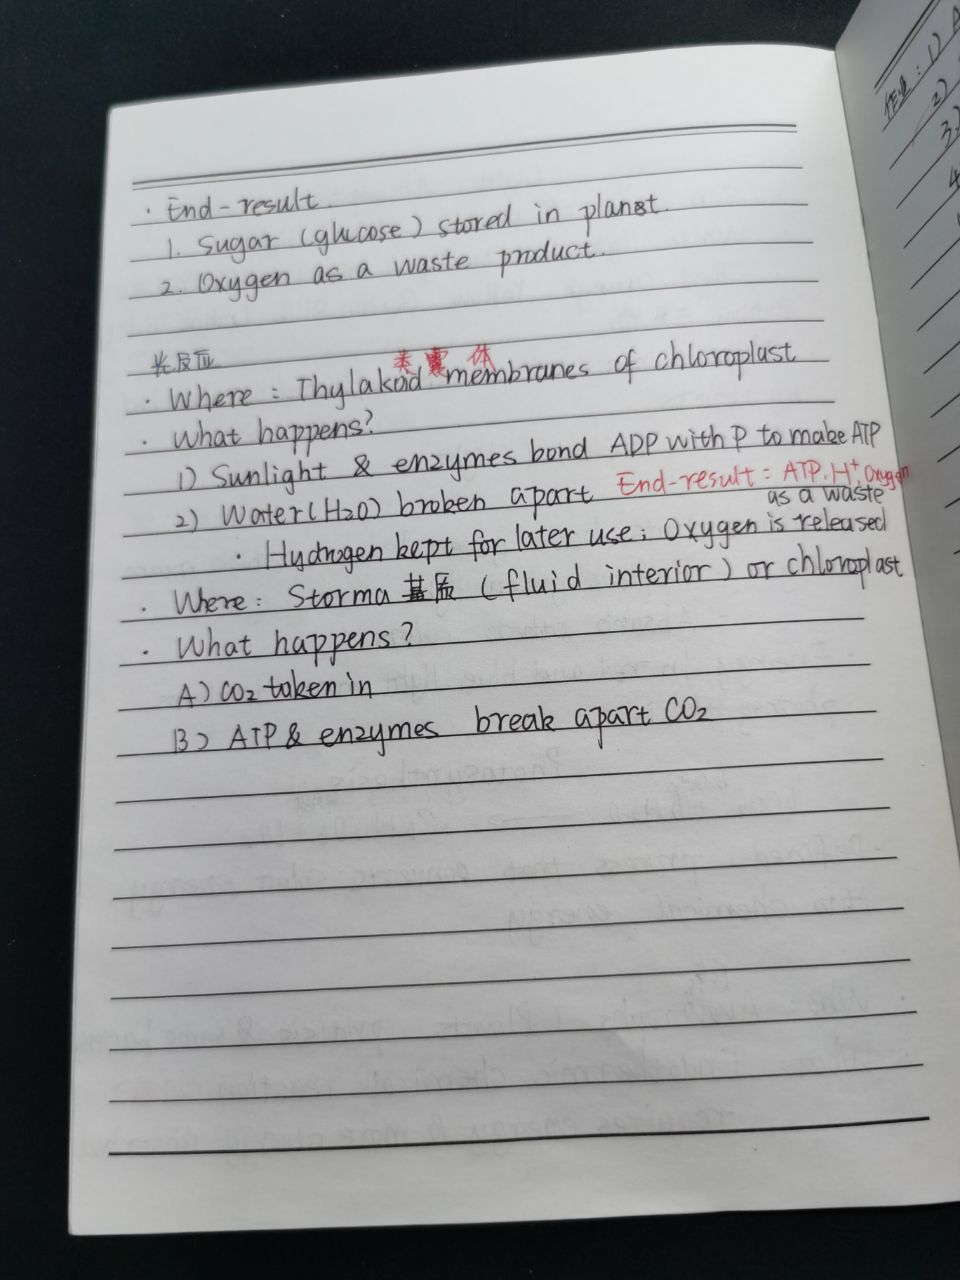 · End-result
1. Sugar (glucose) stored in planet
2. Oxygen as a waste product.
光反应
类囊体
· Where : Thylakoid membranes of chloroplast
· What happens?
1) Sunlight & enzymes bond ADP with P to make ATP
2) Water(H2O) broken apart End-result : ATP. H+, Oxygen
as a waste
· Hydrogen kept for later use; Oxygen is released
· Where : Storma 基质 (fluid interior) or chloroplast
· What happens?
A) CO2 taken in
B) ATP & enzymes break apart CO2
作业 : 1) A
2)
3)
4